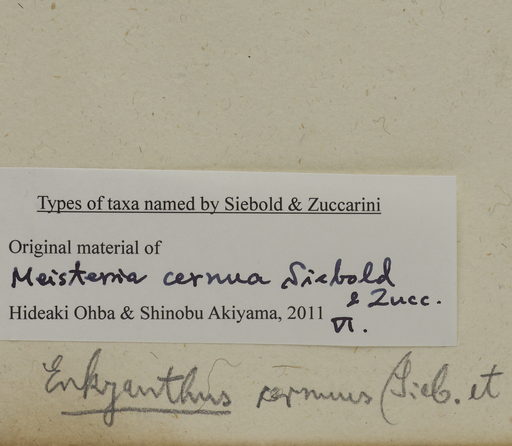 Types of taxa named by Siebold & Zuccarini
Original material of
Meisteria cernua Siebold
& Zucc.
Hideaki Ohba & Shinobu Akiyama, 2011
VI.
Enkyanthus cernuus (Sieb. et